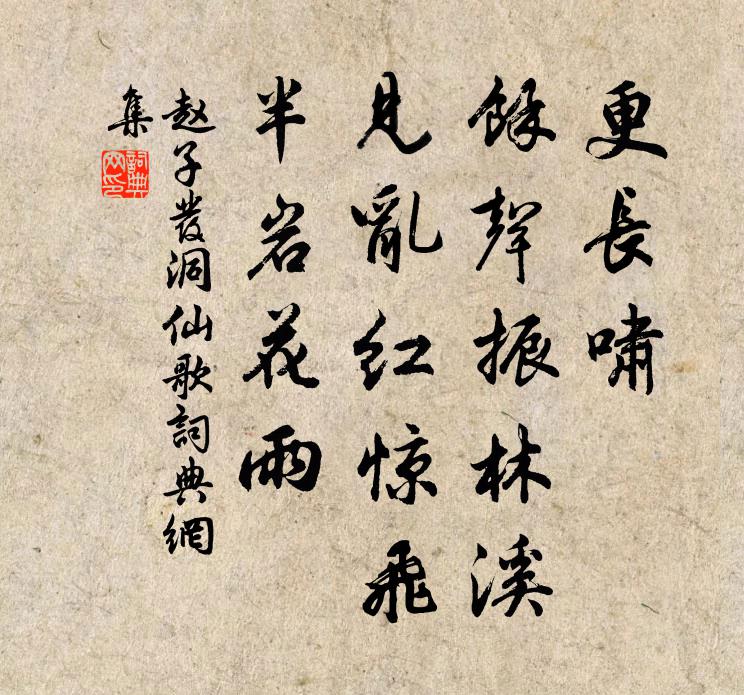 更長嘯
餘聲振林溪
見亂紅惊飛
半岩花雨
赵子發洞仙歌詞典網
集
詞典網印